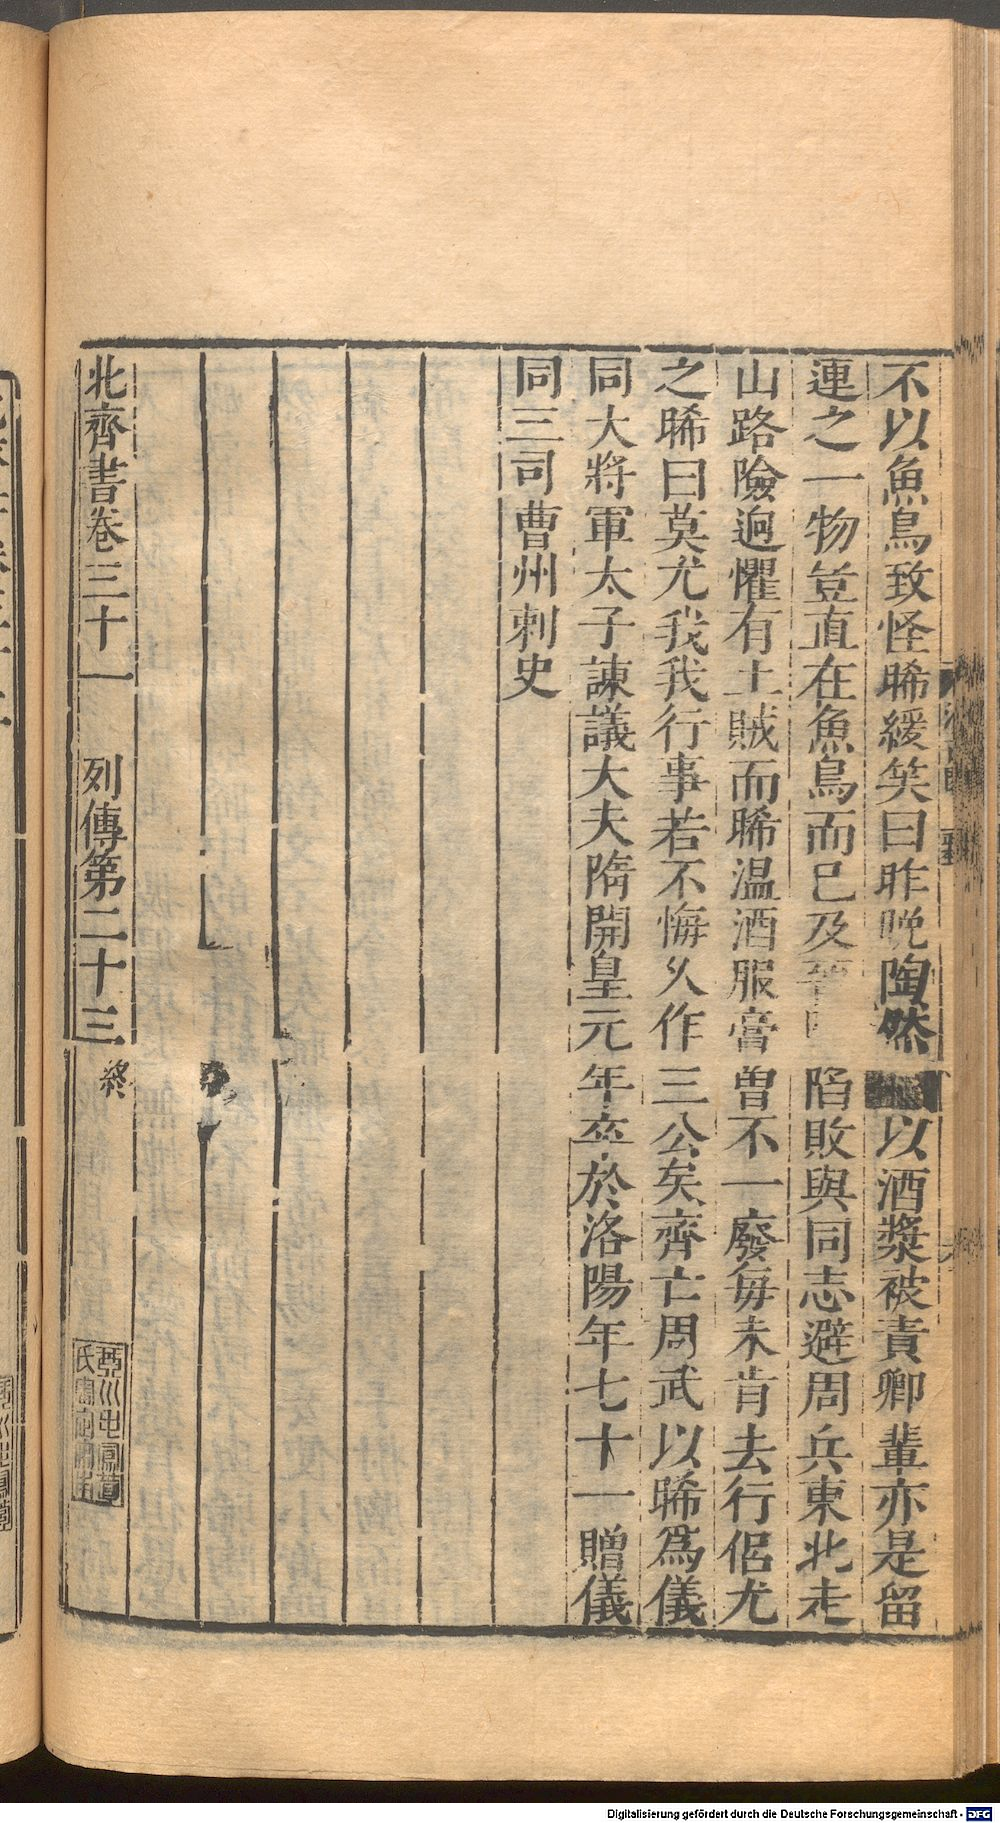 不以魚鳥致怪晞緩笑曰昨晚陶然以酒漿被責卿輩亦是留
連之一物豈直在魚鳥而已及晉陷敗與同志避周兵東北走
山路險逈懼有土賊而晞温酒服膏曽不一廢每未肯去行侶尤
之晞曰莫尤我我行事若不悔久作三公矣齊亡周武以晞爲儀
同大將軍太子諫議大夫隋開皇元年卒於洛陽年七十一贈儀
同三司曹州刺史
北齊書卷三十一 列傳第二十三 終
Digitalisierung gefördert durch die Deutsche Forschungsgemeinschaft - DFG